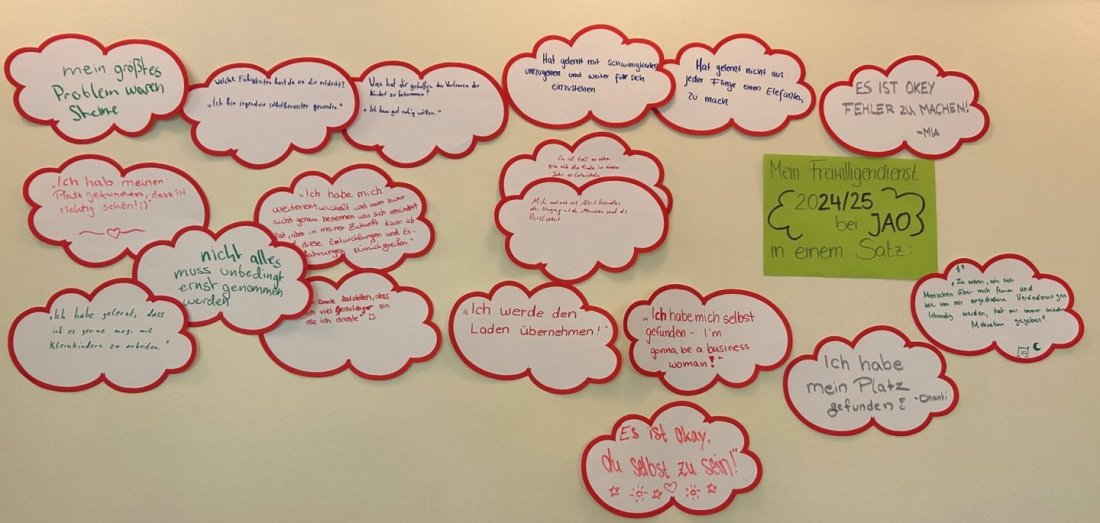 mein größtes
Problem waren
Steine
Welche Fähigkeiten hast du an dir entdeckt?
"Ich bin irgendwie selbstbewusster geworden"
Was hat dir geholfen das Vertrauen der
Kinder zu bekommen?
"Ich kann gut ruhig wirken."
Hat gelernt mit Schwierigkeiten
umzugehen und weiter für sich
einzustehen
Hat gelernt nicht aus
jeder Fliege einen Elefanten
zu machen
ES IST OKEY
FEHLER ZU MACHEN!
-MIA
Mein Freiwilligendienst
2024/25
bei JAO
in einem Satz:
"Ich hab meinen
Platz gefunden, dass ist
richtig schön!:)"
"Ich habe mich
weiterentwickelt und kann zwar
nicht genau benennen was sich verändert
hat, aber in meiner Zukunft kann ich
auf diese Entwicklungen und Er-
fahrungen zurückgreifen"
Es ist toll zu sehen
wie sich die Kinder in einem
Jahr so entwickeln
der Umgang mit den Menschen und die
Herzlichkeit
nicht alles
muss unbedingt
ernst genommen
werden
"Ich habe gelernt, dass
ich es gerne mag, mit
Kleinkindern zu arbeiten."
konnte feststellen, dass
ich viel geduldiger bin
als ich dachte"
"Ich werde den
Laden übernehmen!"
"Ich habe mich selbst
gefunden - I'm
gonna be a business
woman!"
"Zu sehen, wie sich
Menschen über mich freuen und
wie von mir angestoßene Veränderungen
lebendig werden, hat mir immer wieder
Motivation gegeben"
Ich habe
mein Platz
gefunden!
-Chanti
"Es ist Okay,
du selbst zu sein!"